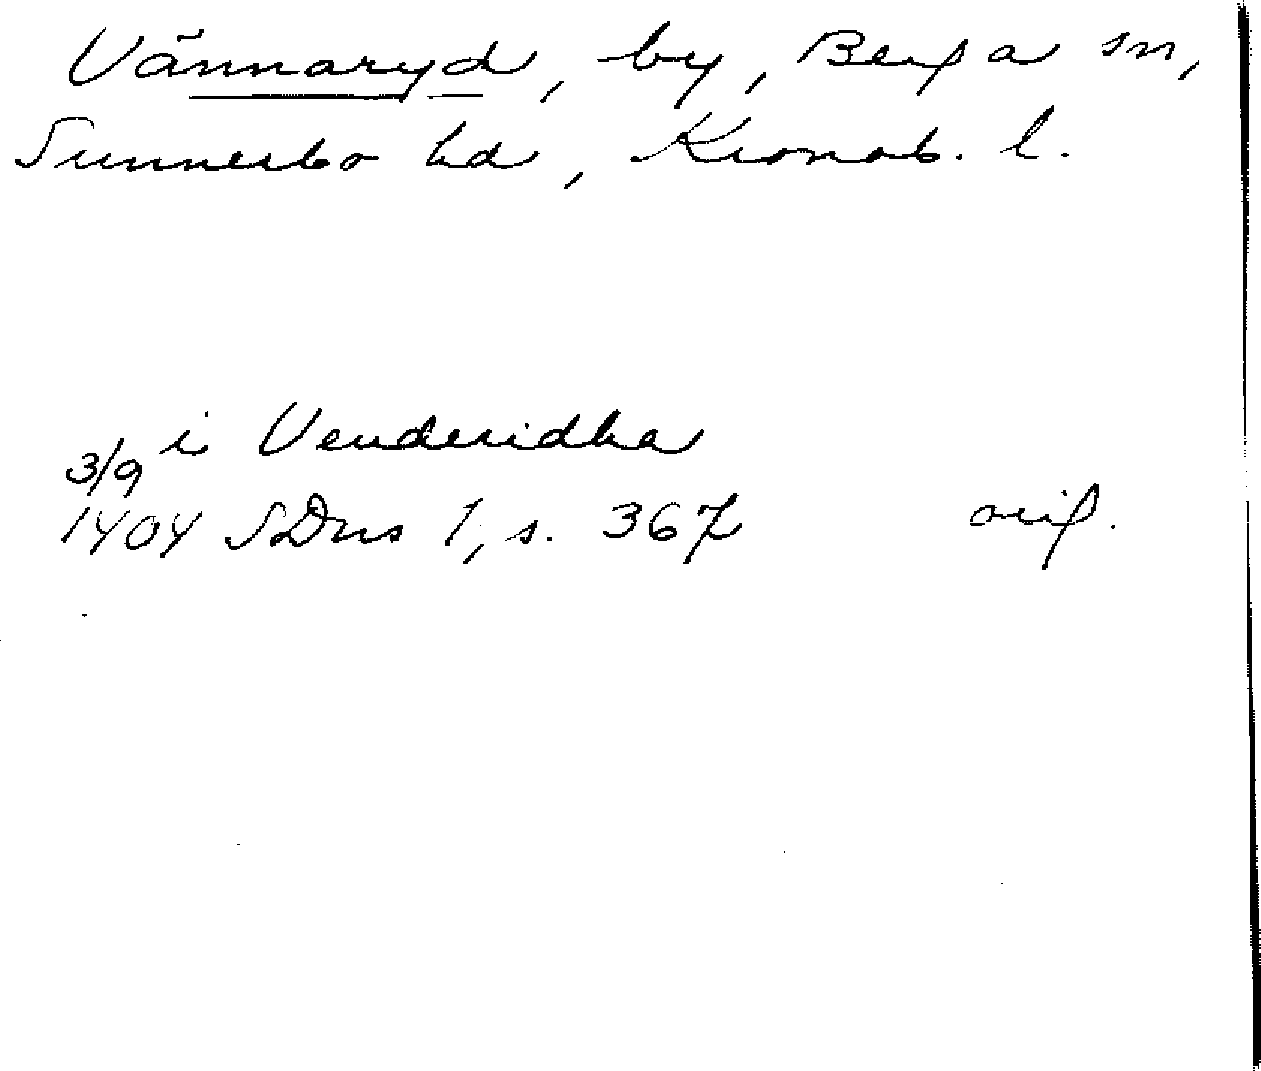 Vännaryd, by, Berga sn,
Sunnerbo hd, Kronob. l.
i Venderidha
3/9
1404 SDns 1, s. 367 orig.